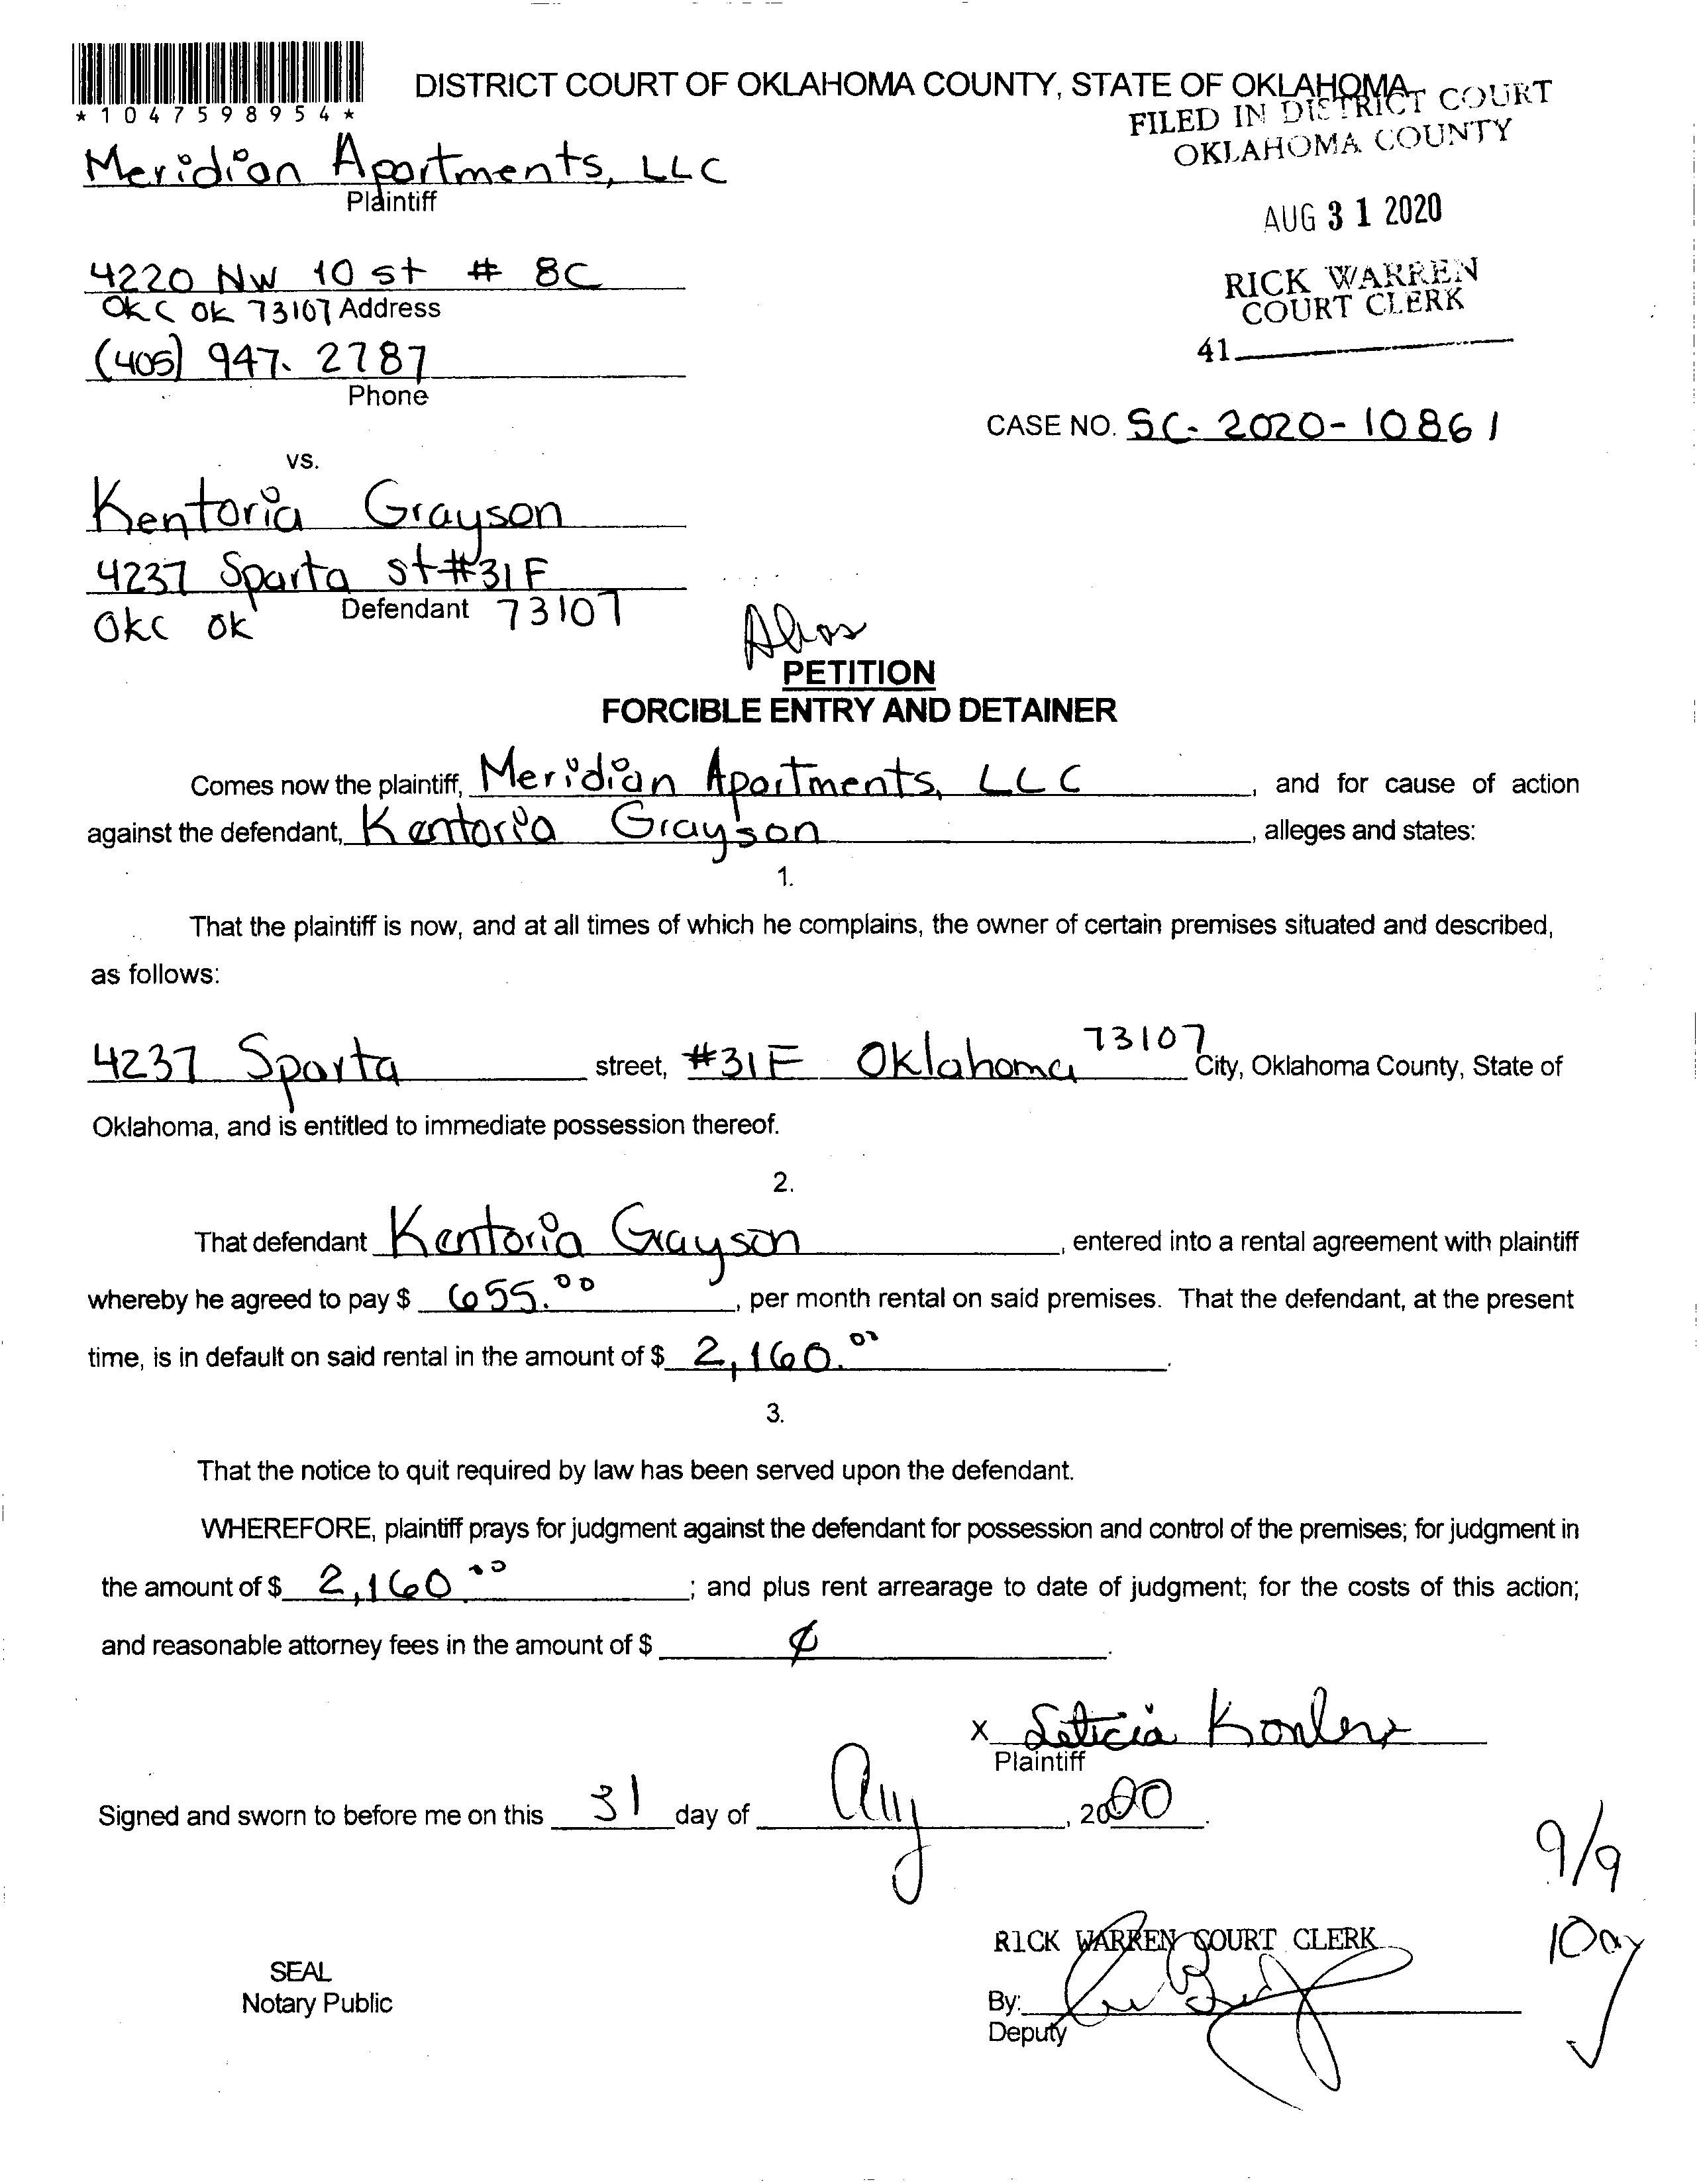 *1047598954*
DISTRICT COURT OF OKLAHOMA COUNTY, STATE OF OKLAHOMA
FILED IN DISTRICT COURT
OKLAHOMA COUNTY
Meridian Apartments, LLC
Plaintiff
AUG 31 2020
4220 NW 10 st # 8C
OKC OK 73107 Address
RICK WARREN
COURT CLERK
(405) 947. 2787
Phone
41
CASE NO. SC- 2020-10861
vs.
Kentoria Grayson
4237 Sparta st #31F
Defendant
OKC OK 73107
Alias
PETITION
FORCIBLE ENTRY AND DETAINER
Comes now the plaintiff, Meridian Apartments, LLC, and for cause of action
against the defendant, Kentoria Grayson, alleges and states:
1.
That the plaintiff is now, and at all times of which he complains, the owner of certain premises situated and described,
as follows:
4237 Sparta street, #31F Oklahoma 73107 City, Oklahoma County, State of
Oklahoma, and is entitled to immediate possession thereof.
2.
That defendant Kentoria Grayson, entered into a rental agreement with plaintiff
whereby he agreed to pay $ 655.00, per month rental on said premises. That the defendant, at the present
time, is in default on said rental in the amount of $ 2,160.00.
3.
That the notice to quit required by law has been served upon the defendant.
WHEREFORE, plaintiff prays for judgment against the defendant for possession and control of the premises; for judgment in
the amount of $ 2,160.00; and plus rent arrearage to date of judgment; for the costs of this action;
and reasonable attorney fees in the amount of $ ¢.
X Leticia
Plaintiff
Signed and sworn to before me on this 31 day of Aug, 2020.
9/9
RICK WARREN COURT CLERK
10am
SEAL
Notary Public
By:
Deputy